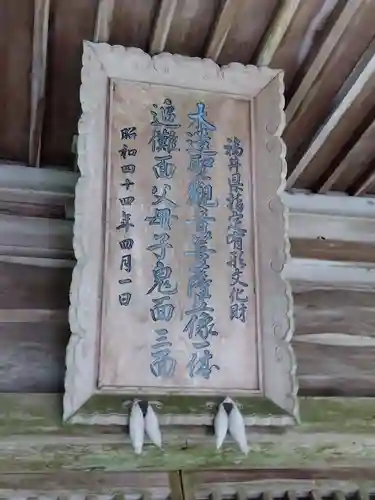 福井県指定有形文化財
木造聖観音菩薩像一体
追儺面父母子鬼面三面
昭和四十四年四月一日